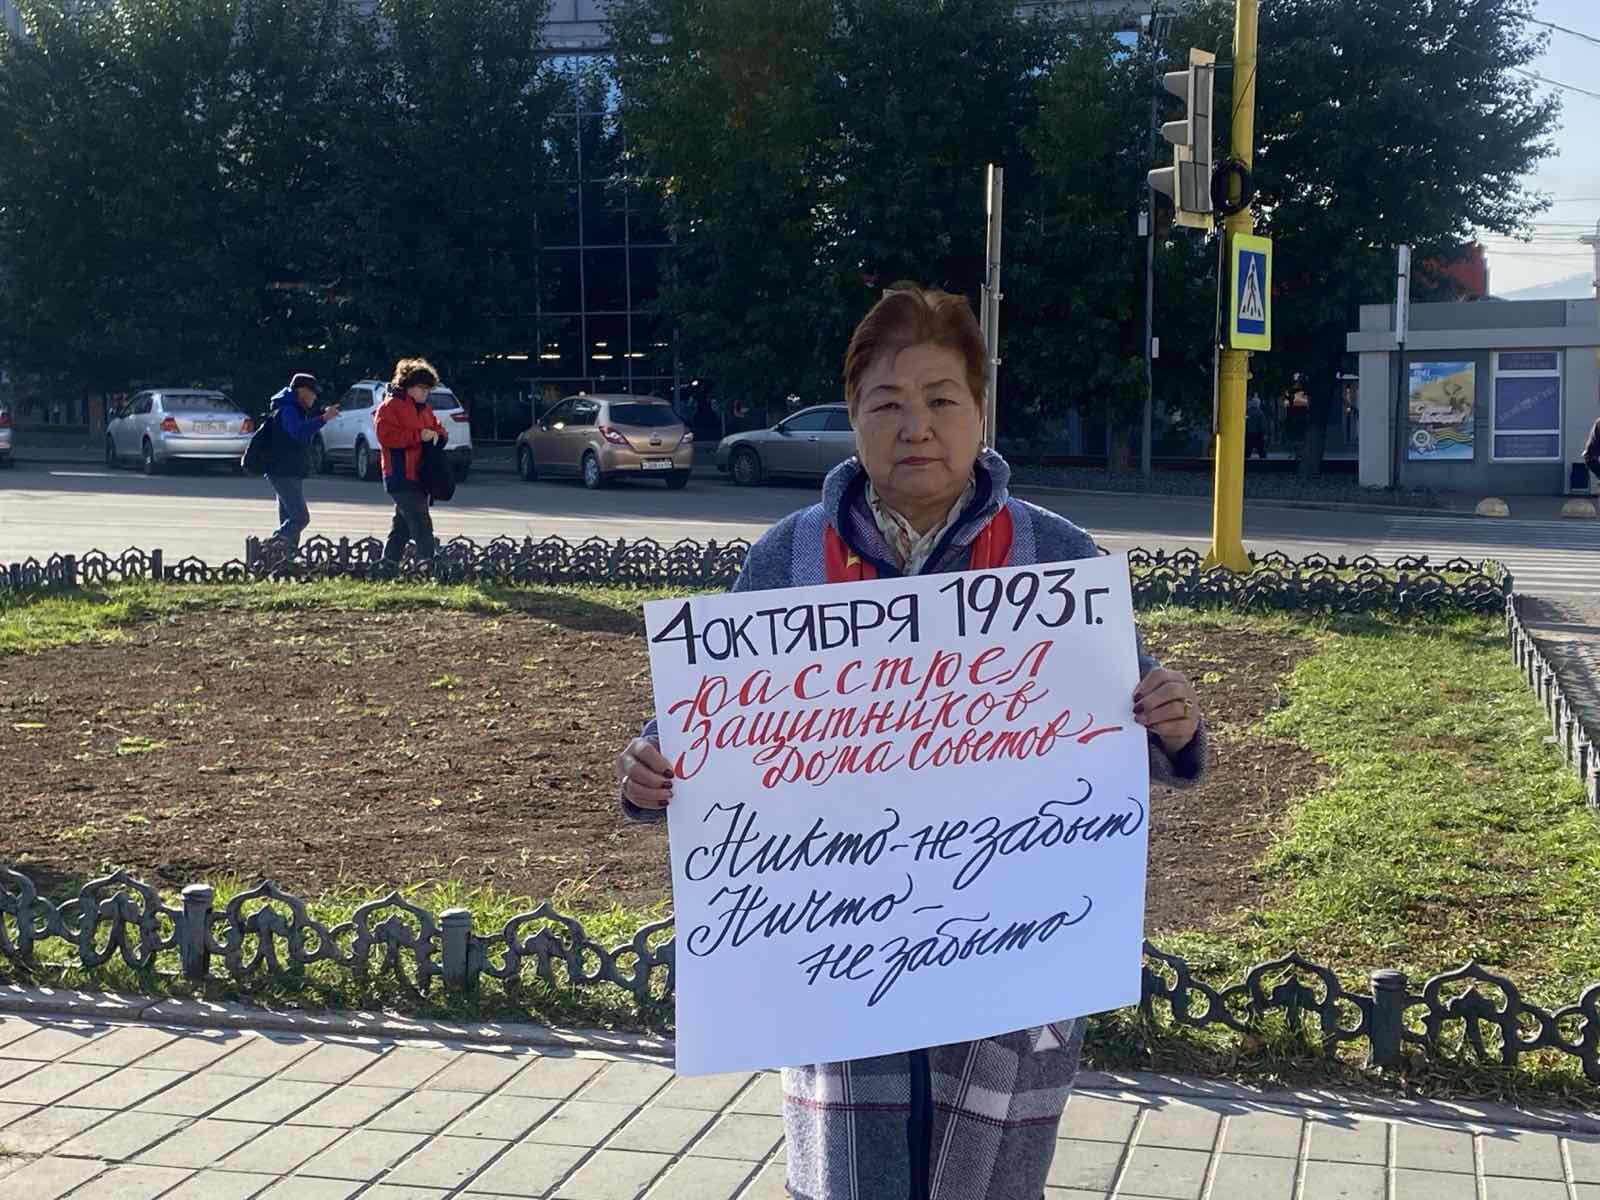 4 ОКТЯБРЯ 1993 г.
-расстрел
защитников
Дома Советов-
Никто-не забыт
Ничто-
не забыто